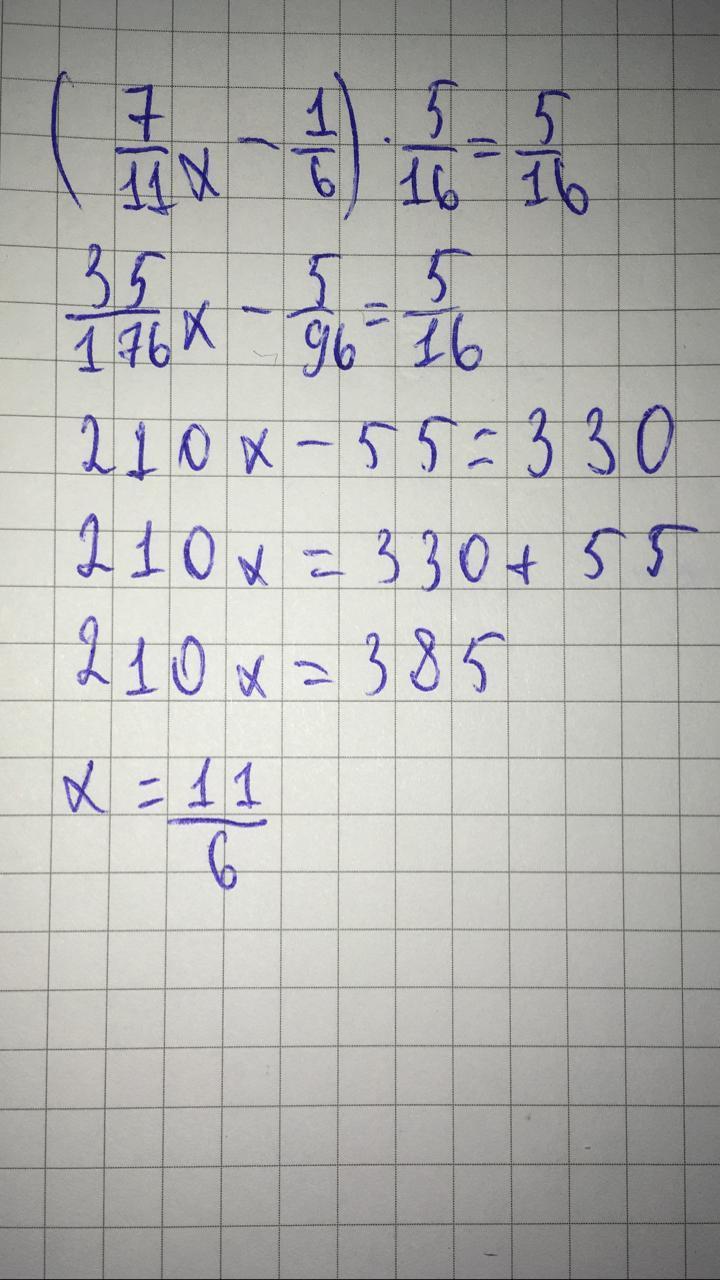 (7/11x - 1/6) · 5/16 = 5/16
35/176x - 5/96 = 5/16
210x - 55 = 330
210x = 330 + 55
210x = 385
x = 11/6